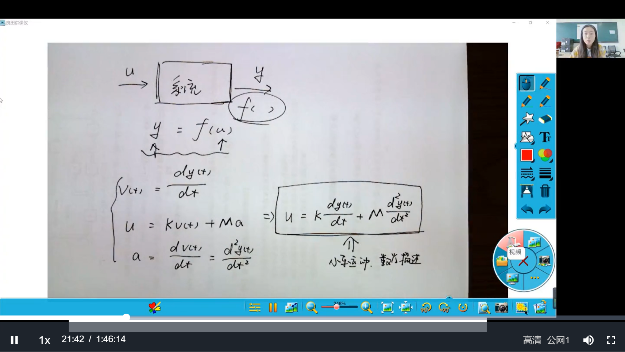 u
y
系统
f( )
y = f(u)
v(t) = dy(t)/dt
u = Kv(t) + Ma
a = dv(t)/dt = d²y(t)/dt²
=> u = K dy(t)/dt + M d²y(t)/dt²
小车运动 数学描述
视频
1x
21:42 / 1:46:14
高清 公网1